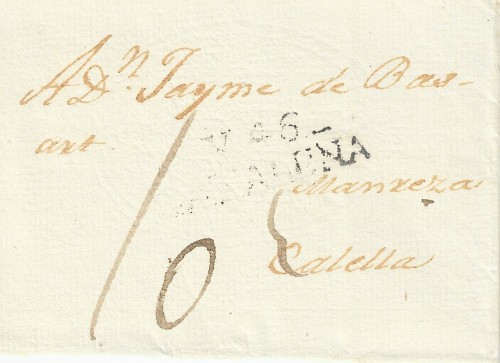 A Dn. Jayme de Bas-
art
Manreza
Calella
10